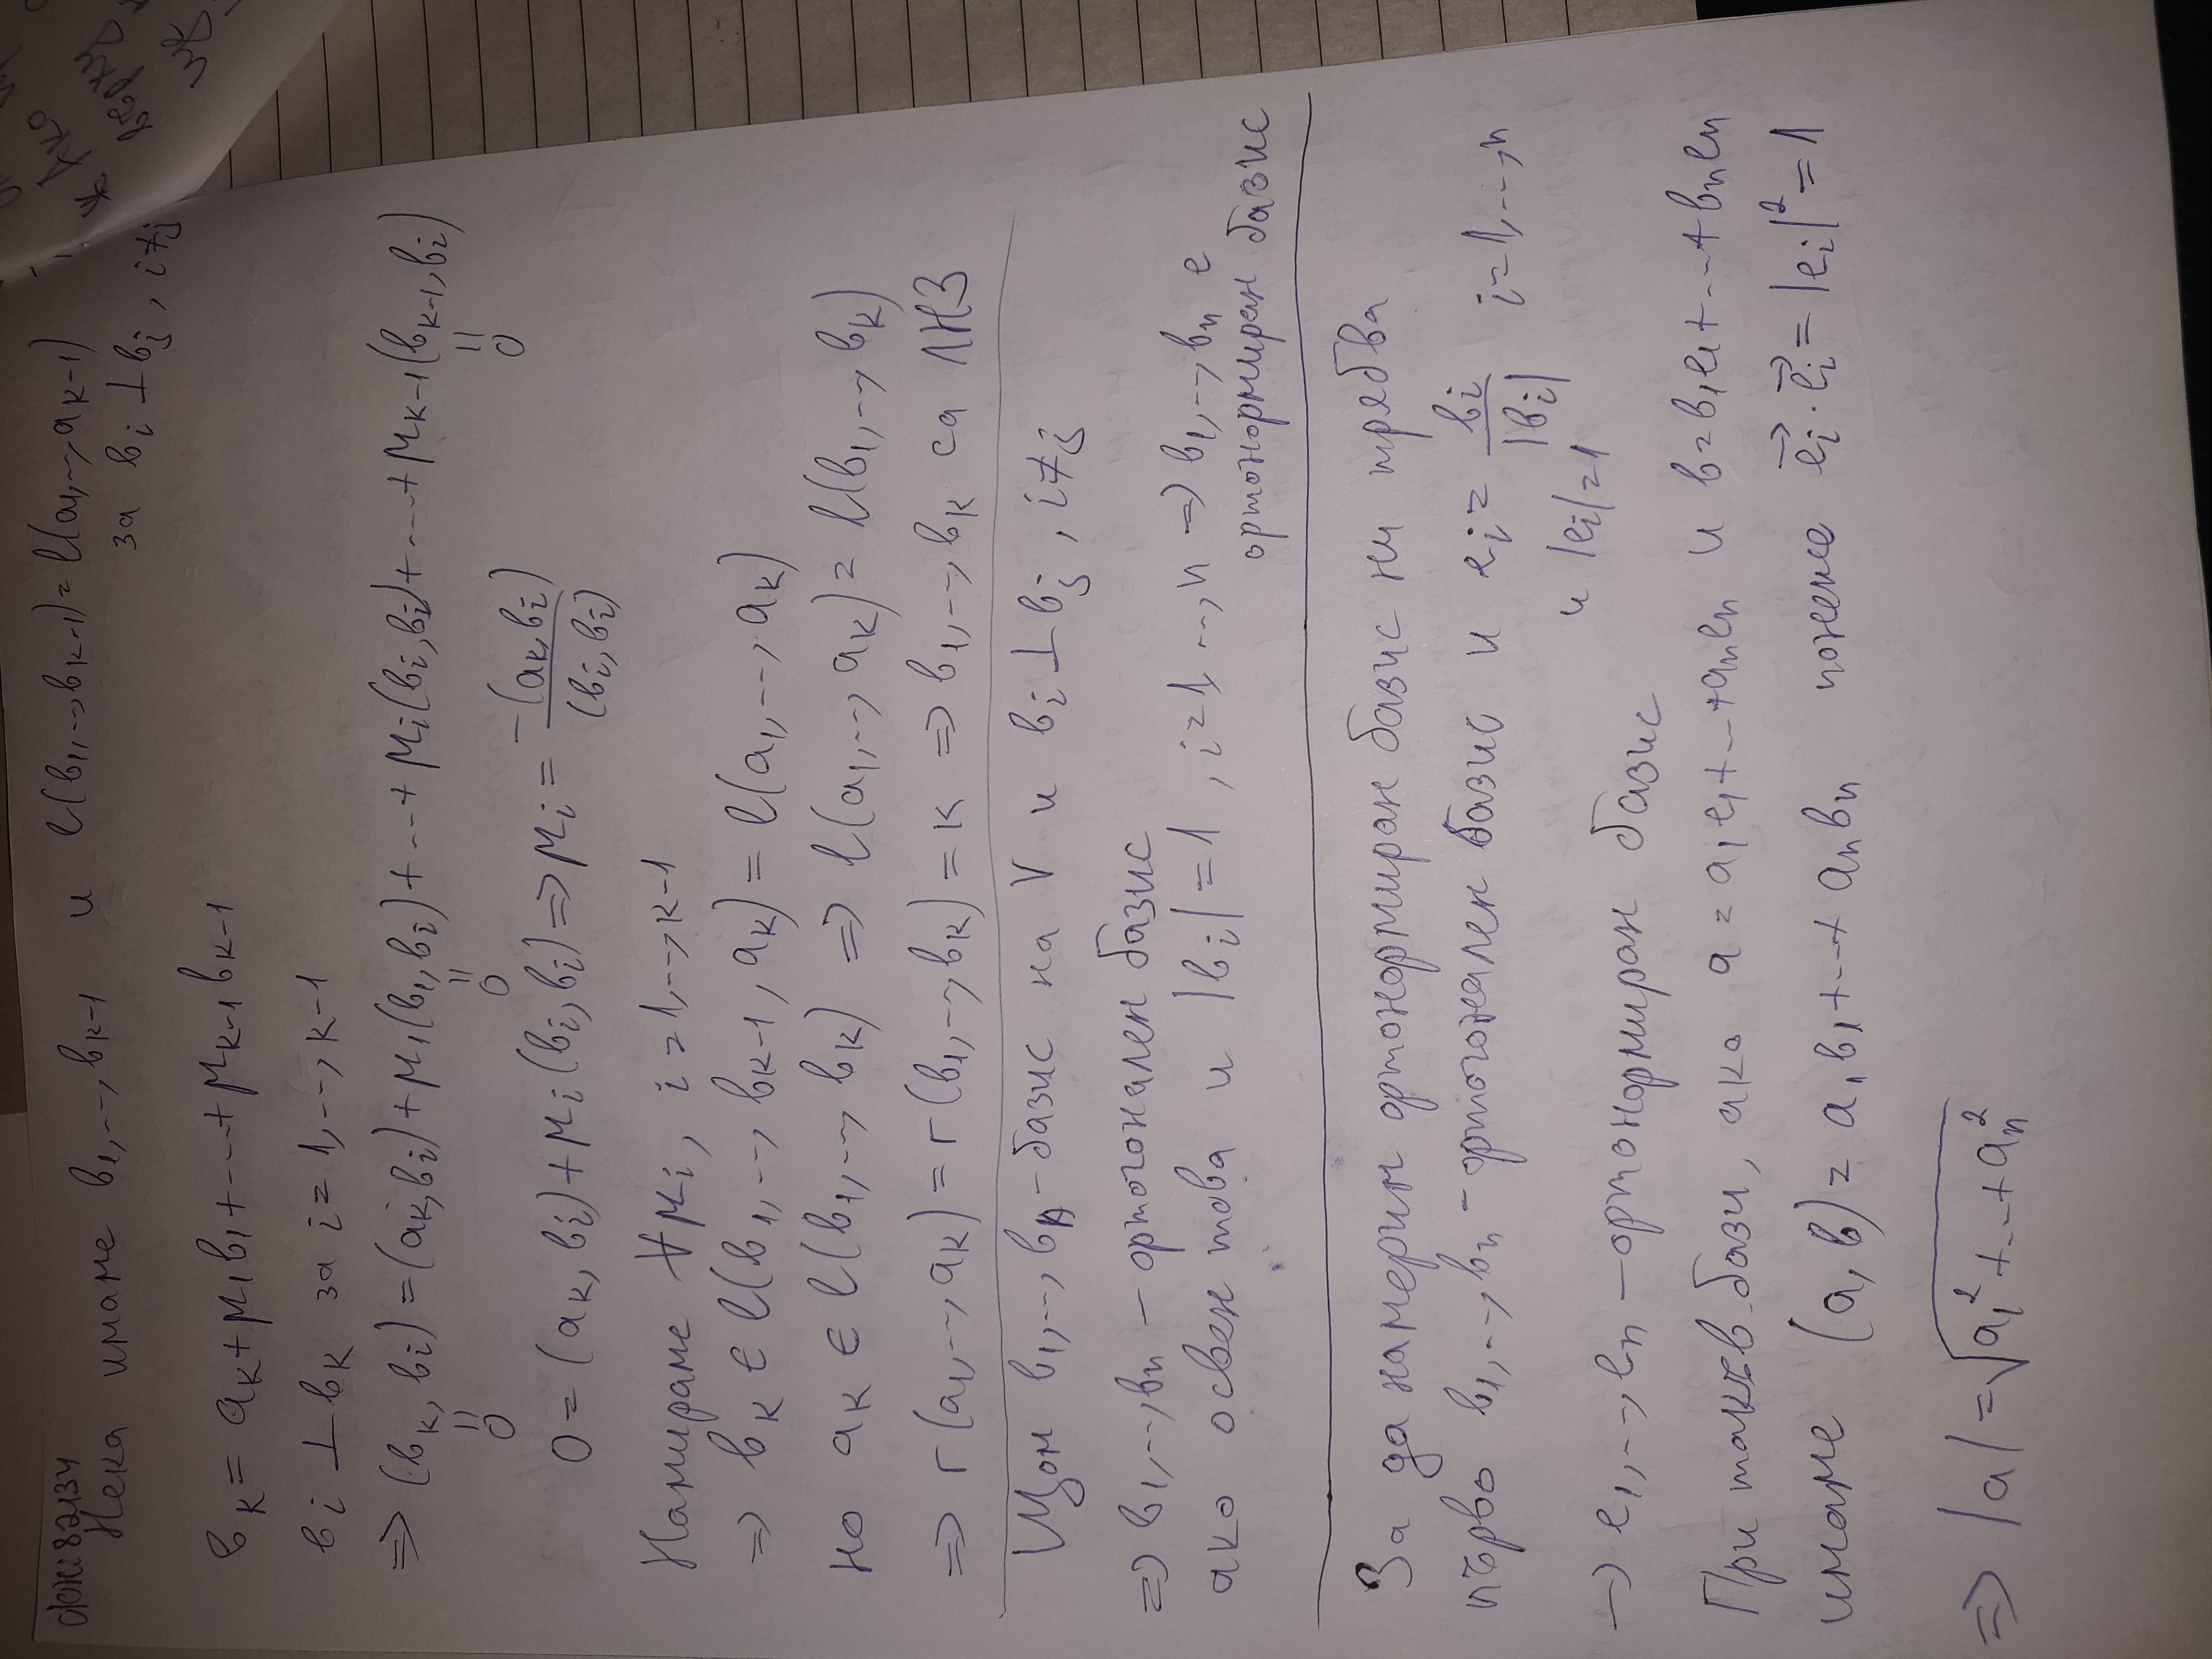 фн: 82134
Нека имаме b₁,...,bₖ₋₁ и l(b₁,...,bₖ₋₁)=l(a₁,...,aₖ₋₁)
за bᵢ⊥bⱼ, i≠j
bₖ = aₖ+μ₁b₁+...+μₖ₋₁bₖ₋₁
bᵢ ⊥ bₖ за i=1,...,k-1
⇒ (bₖ, bᵢ)=(aₖ,bᵢ)+μ₁(b₁,bᵢ)+...+μᵢ(bᵢ,bᵢ)+...+μₖ₋₁(bₖ₋₁,bᵢ)
= = =
0 0 0
0=(aₖ, bᵢ)+μᵢ(bᵢ,bᵢ)⇒μᵢ= -(aₖ,bᵢ)/(bᵢ,bᵢ)
Намираме ∀μᵢ, i=1,...,k-1
⇒ bₖ ∈ l(b₁,...,bₖ₋₁,aₖ)=l(a₁,...,aₖ)
но aₖ ∈ l(b₁,...,bₖ) ⇒ l(a₁,...,aₖ)=l(b₁,...,bₖ)
⇒ r(a₁,...,aₖ)=r(b₁,...,bₖ)=k ⇒ b₁,...,bₖ са ЛНЗ
Щом b₁,...,bₙ-базис на V и bᵢ⊥bⱼ, i≠j
⇒ b₁,...,bₙ - ортогонален базис
ако освен това и |bᵢ|=1, i=1,...,n ⇒ b₁,...,bₙ е
ортонормиран базис
За да намерим ортонормиран базис ни трябва
първо b₁,...,bₙ - ортогонален базис и eᵢ= bᵢ/|bᵢ| i=1,...,n
и |eᵢ|=1
→ e₁,...,eₙ - ортонормиран базис
При такъв бази, ако a=a₁e₁+...+aₙeₙ и b=b₁e₁+...+bₙeₙ
имаме (a,b)=a₁b₁+...+aₙbₙ понеже e⃗ᵢ·e⃗ᵢ=|eᵢ|²=1
⇒ |a|=√(a₁²+...+aₙ²)
* Ако
върху
ще